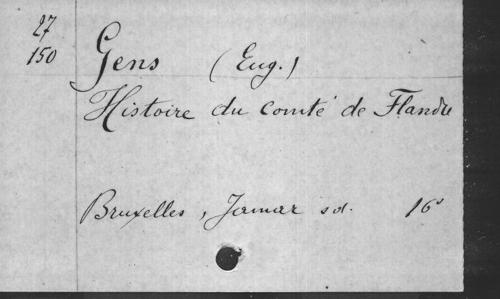 27
150
Gens (Eug.)
Histoire du comté de Flandre
Bruxelles, Jamar sd. 16°